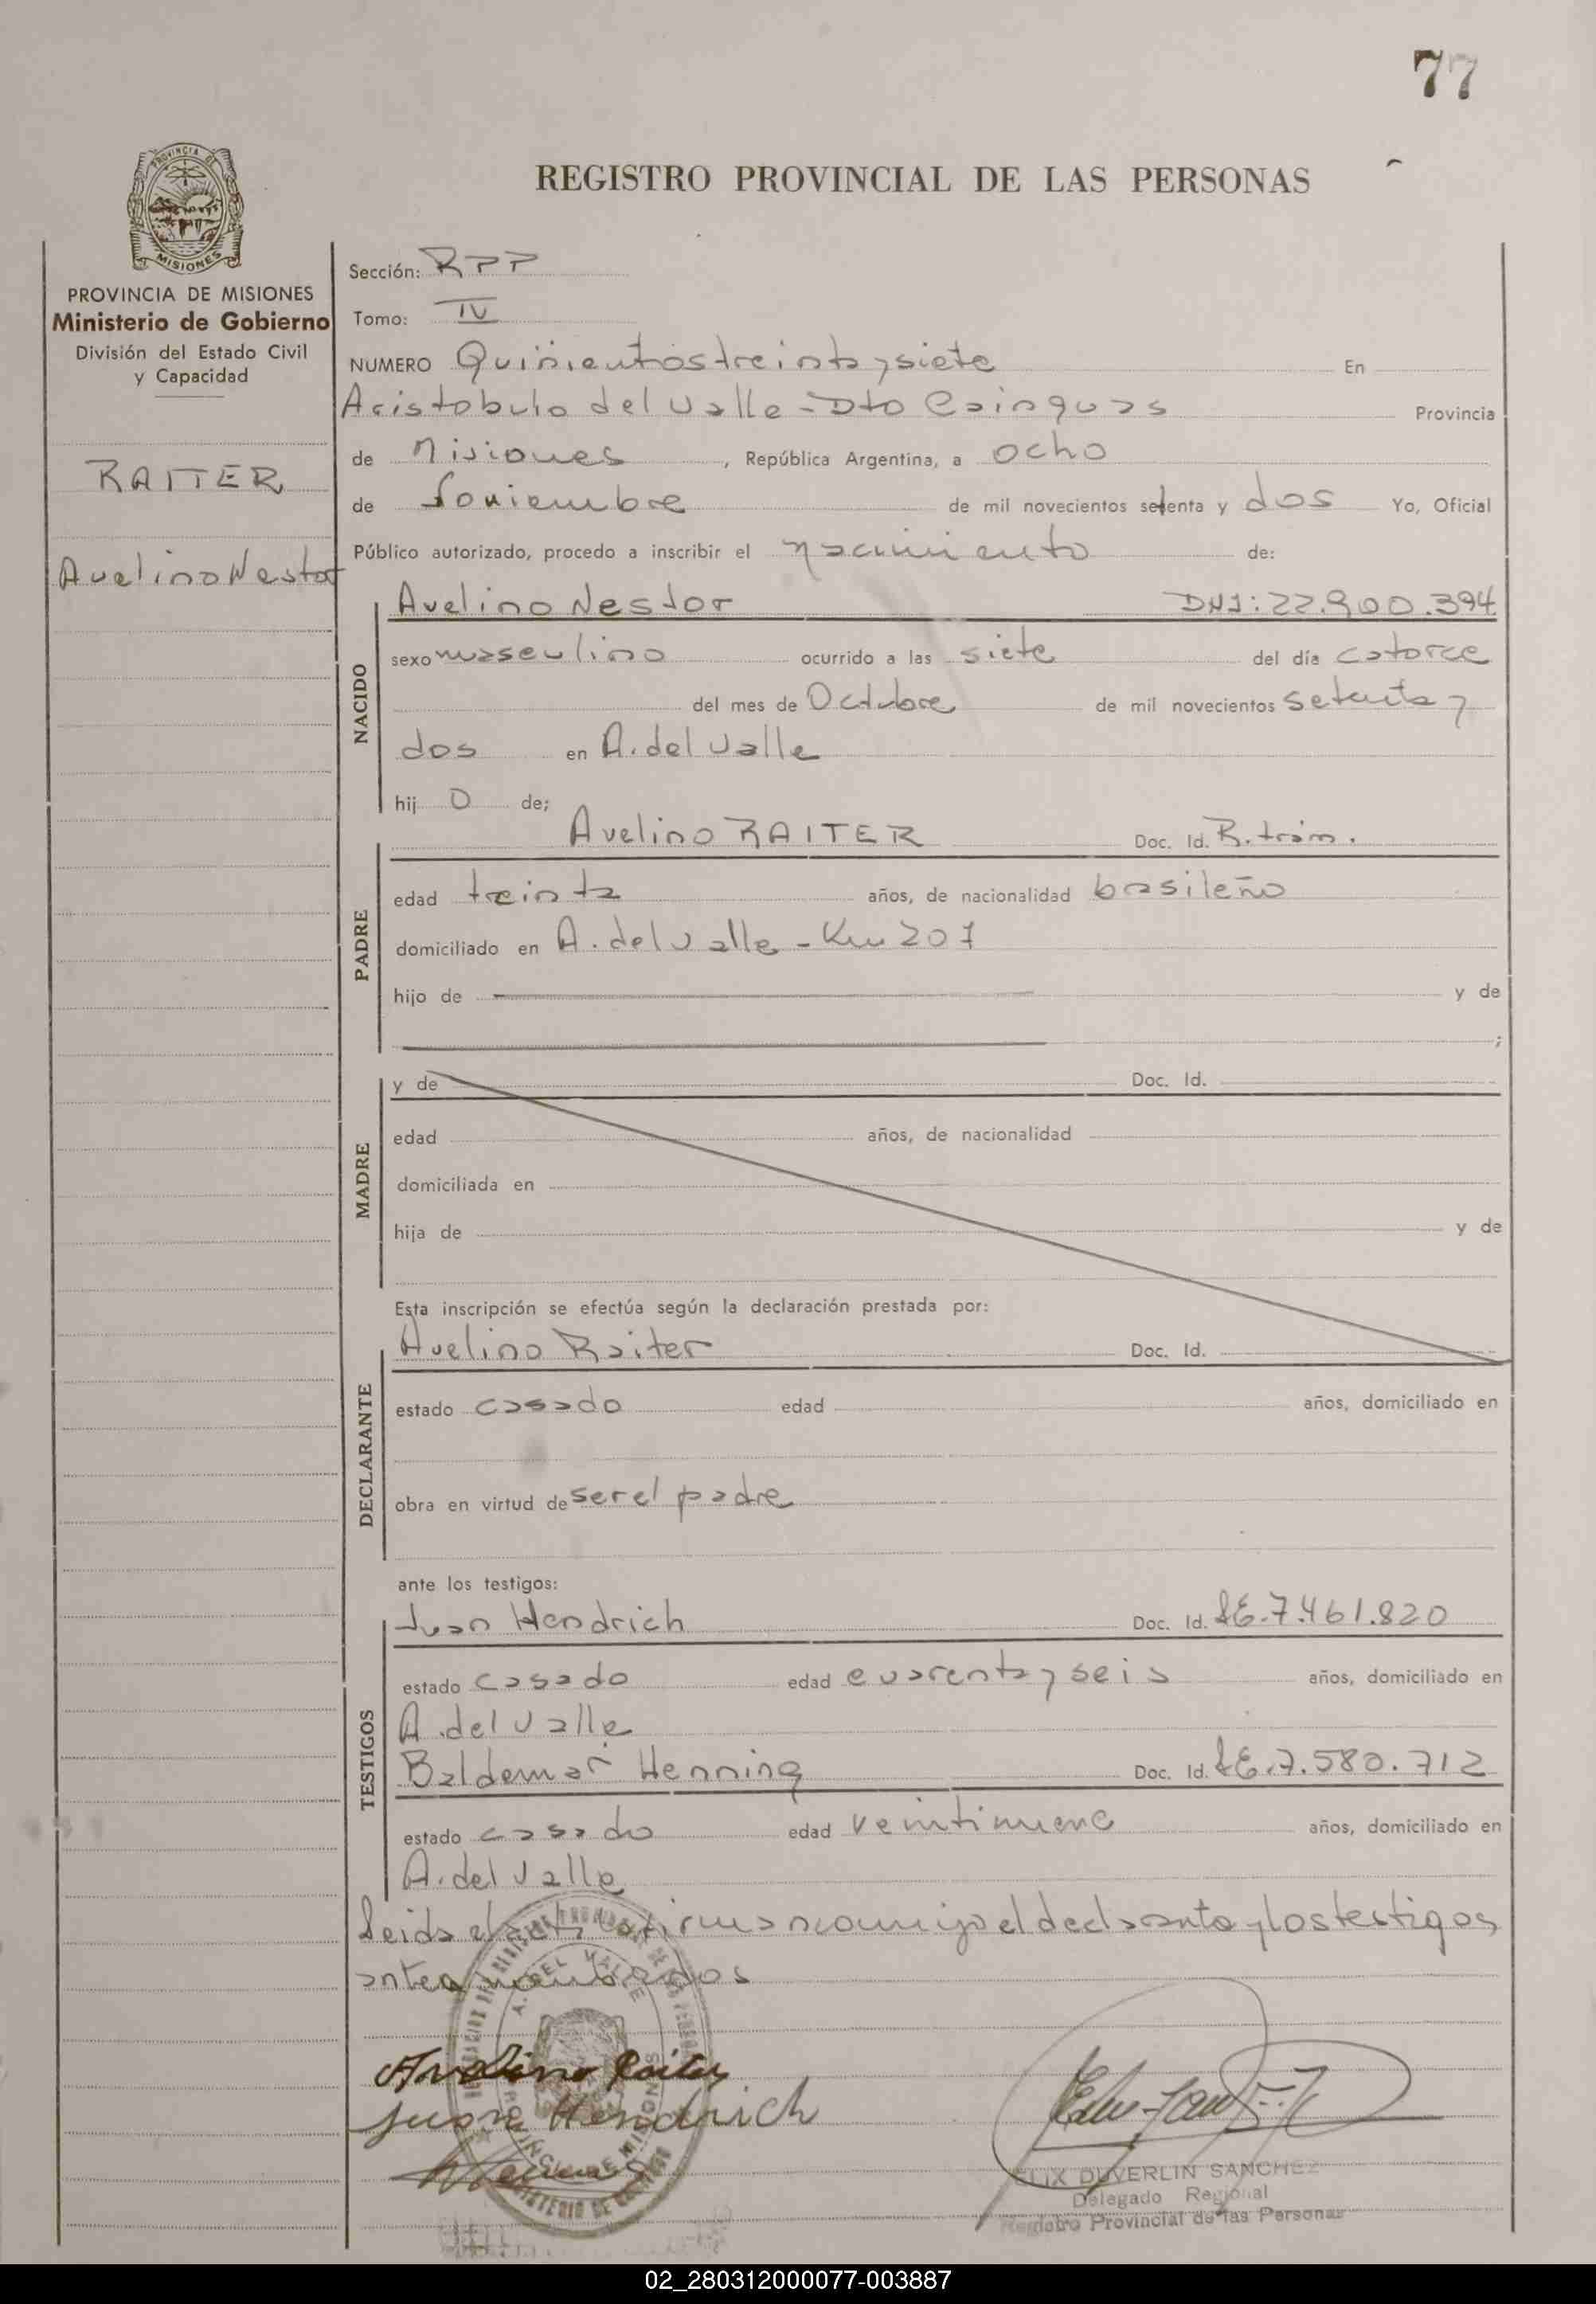 77
REGISTRO PROVINCIAL DE LAS PERSONAS
PROVINCIA DE
MISIONES
PROVINCIA DE MISIONES
Ministerio de Gobierno
División del Estado Civil
y Capacidad
RAITER
Avelino Nestor
Sección: RPP
Tomo: IV
NUMERO Quinientos treinta y siete En
Aristobulo del Valle - Dto Cainguas Provincia
de Misiones, República Argentina, a ocho
de Noviembre de mil novecientos setenta y dos Yo, Oficial
Público autorizado, procedo a inscribir el nacimiento de:
NACIDO
Avelino Nestor DNI: 22.900.394
sexo masculino ocurrido a las siete del día catorce
del mes de Octubre de mil novecientos setenta y
dos en A. del Valle
hij o de;
PADRE
Avelino RAITER Doc. Id. R. trám.
edad treinta años, de nacionalidad brasileño
domiciliado en A. del Valle - Km 207
hijo de y de
;
MADRE
y de Doc. Id.
edad años, de nacionalidad
domiciliada en
hija de y de
Esta inscripción se efectúa según la declaración prestada por:
DECLARANTE
Avelino Raiter Doc. Id.
estado casado edad años, domiciliado en
obra en virtud de ser el padre
ante los testigos:
TESTIGOS
Juan Hendrich Doc. Id. LE. 7.461.820
estado casado edad cuarenta y seis años, domiciliado en
A. del Valle
Baldemar Henning Doc. Id. LE. 7.580.712
estado casado edad veintinueve años, domiciliado en
A. del Valle
Leida el acta la firman conmigo el declarante y los testigos
antes nombrados
A. DEL VALLE
PROVINCIA DE MISIONES
MINISTERIO DE GOBIERNO
Avelino Raiter
Juan Hendrich
FELIX DUVERLIN SANCHEZ
Delegado Regional
Registro Provincial de las Personas
02_280312000077-003887